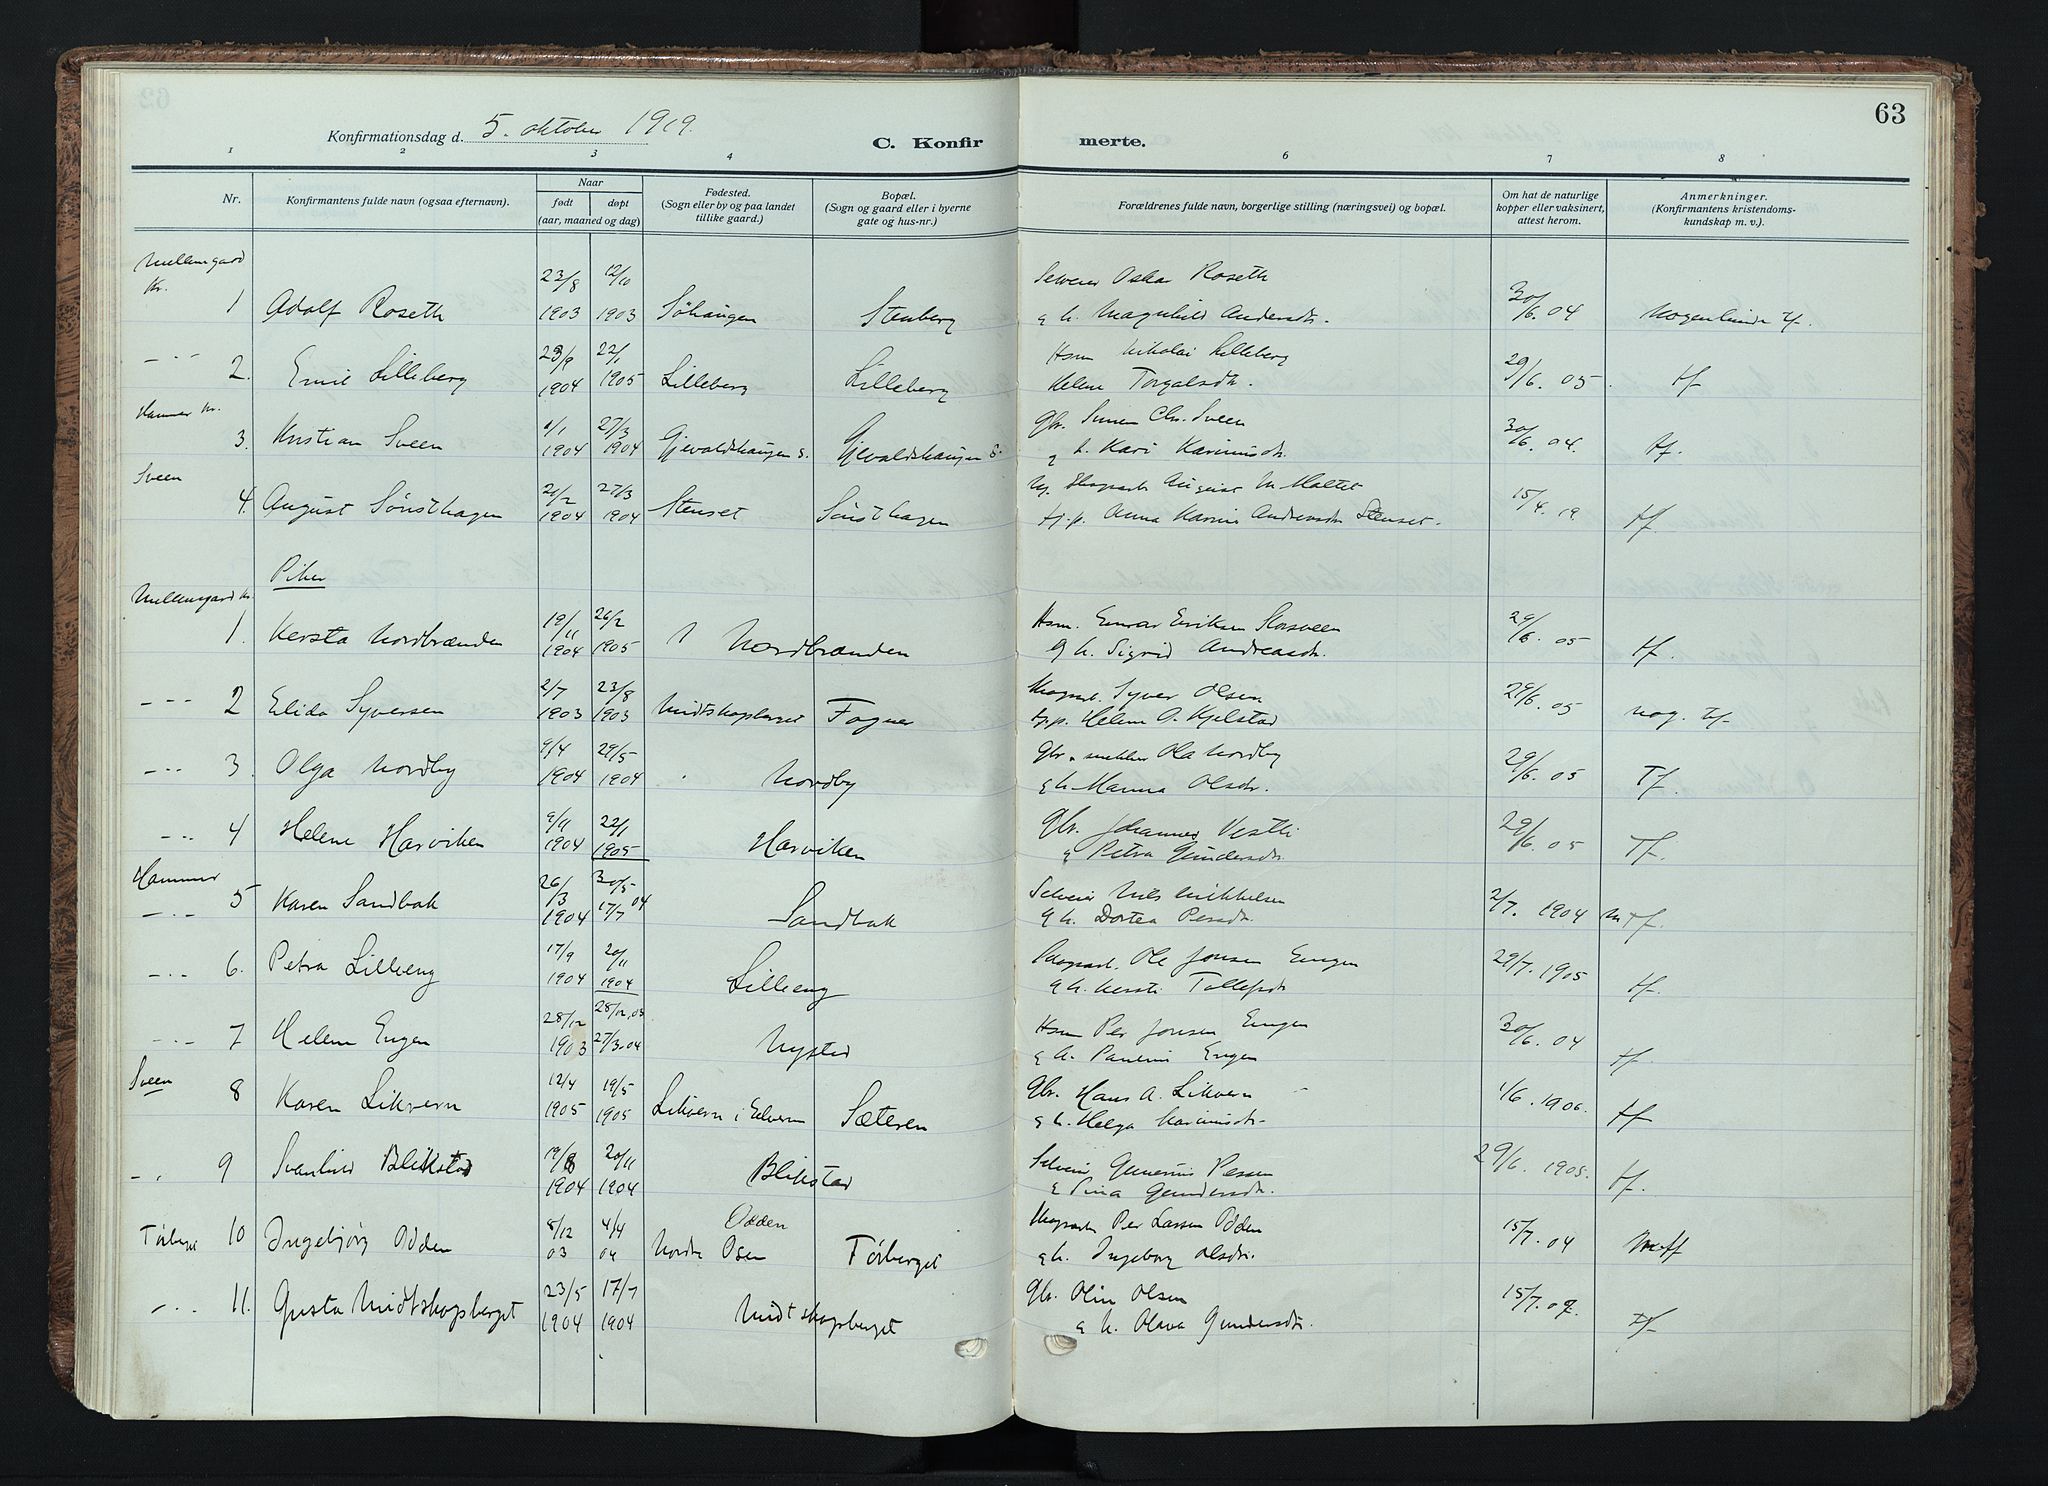 63
Konfirmationsdag d. 5. oktober 1919.
C. Konfirmerte.
1 2 3 4 5 6 7 8
Nr.
Konfirmantens fulde navn (ogsaa efternavn).
Naar
født døpt
(aar, maaned og dag)
Fødested.
(Sogn eller by og paa landet
tillike gaard.)
Bopæl.
(Sogn og gaard eller i byerne
gate og hus-nr.)
Forældrenes fulde navn, borgerlige stilling (næringsvei) og bopæl.
Om hat de naturlige
kopper eller vaksinert,
attest herom.
Anmerkninger.
(Konfirmantens kristendoms-
kundskap m. v.).
Mellemgaard Kr.
1 Adolf Roseth 23/8 1903 12/10 1903 Söhaugen Stenberg
Selveier Oskar Roseth
g h. Magnhild Andersdtr. 30/6. 04 Nogenlunde tf.
-"- 2. Emil Lilleberg 23/9 1904 22/1 1905 Lilleberg Lilleberg
Hsm Nikolai Lilleberg
Helene Torgalsdtr. 29/6. 05. tf
Hammer kr.
3. Kristian Sveen 1/1 1904 27/3 1904 Gjevaldshaugen s. Gjevaldshaugen S.
Gbr. Simen Chr. Sveen
g h. Kari Karinusdtr. 30/6. 04. tf.
Sveen
4. August Sönsthagen 21/2 1904 27/3 1904 Stenset Sönsthagen
Ug. Skogsarb August M. Moltet
tj.p. Anna Karine Andreasdtr Stenset. 15/4. 19. tf.
Piker
Mellemgaard kr.
1. Kersta Nordbrænden 19/11 1904 26/2 1905 Nordbrænden
Hsm. Einar Eriksen Storsveen
g h. Sigrid Andreasdtr. 29/6. 05 tf.
-"- 2 Elida Syversen 2/7 1903 23/8 1903 Midtskogberget Fagner
Skogsarb. Syver Olsen
tj.p. Helene O. Kjelstad 29/6. 05 nog. tf
-"- 3. Olga Nordby 9/4 1904 29/5 1904 Nordby
Gbr. snekker Ola Nordby
g h. Hanna Olsdtr. 29/6. 05 Tf.
-"- 4 Helene Harviken 9/11 1904 22/1 1905 Harviken
Gbr. Johannes Vestli
g Petra Gundersdtr. 29/6. 05 Tf.
Hammer
-"- 5 Karen Sandbak 26/3 1904 30/5 17/7 04 Sandbak
Selveier Nils Mikkelsen
g h. Dortea Persdtr. 2/7. 1904 M tf.
-"- 6. Petra Lilleeng 17/9 1904 20/11 1904 Lilleeng
Skogsarb. Ole Jonsen Engen
g h. Kersti Tollefsdtr 29/7. 1905 tf.
-"- 7 Helene Engen 28/12 1903 28/12. 03 27/3. 04 Nysted
Hsm Per Jonsen Engen
g h. Pauline Engen 30/6. 04 tf
Sveen
8 Karen Likvern 12/4 1905 19/5 1905 Likvern i Elverum Sæteren
Gbr. Hans A. Likvern
g h. Helga Karinusdtr 1/6. 1906. tf
-"- 9 Svanhild Blikstad 19/8 1904 20/11 1904 Blikstad
Selveier Gunerius Persen
g Sina Gundersdtr. 29/6. 1905. tf.
Törberget 10 Ingebjörg Odden 8/12 03 4/4 04 Odden Nordre Osen Törberget
Skogsarb Per Larsen Odden
g h. Ingeborg Olsdtr. 15/7. 04 Mtf
-"- 11. Gusta Midtskogsberget 23/5 1904 17/7 1904 Midtskogsberget
Gbr. Olin Olsen
g h. Olava Gundersdtr. 15/7. 07. tf